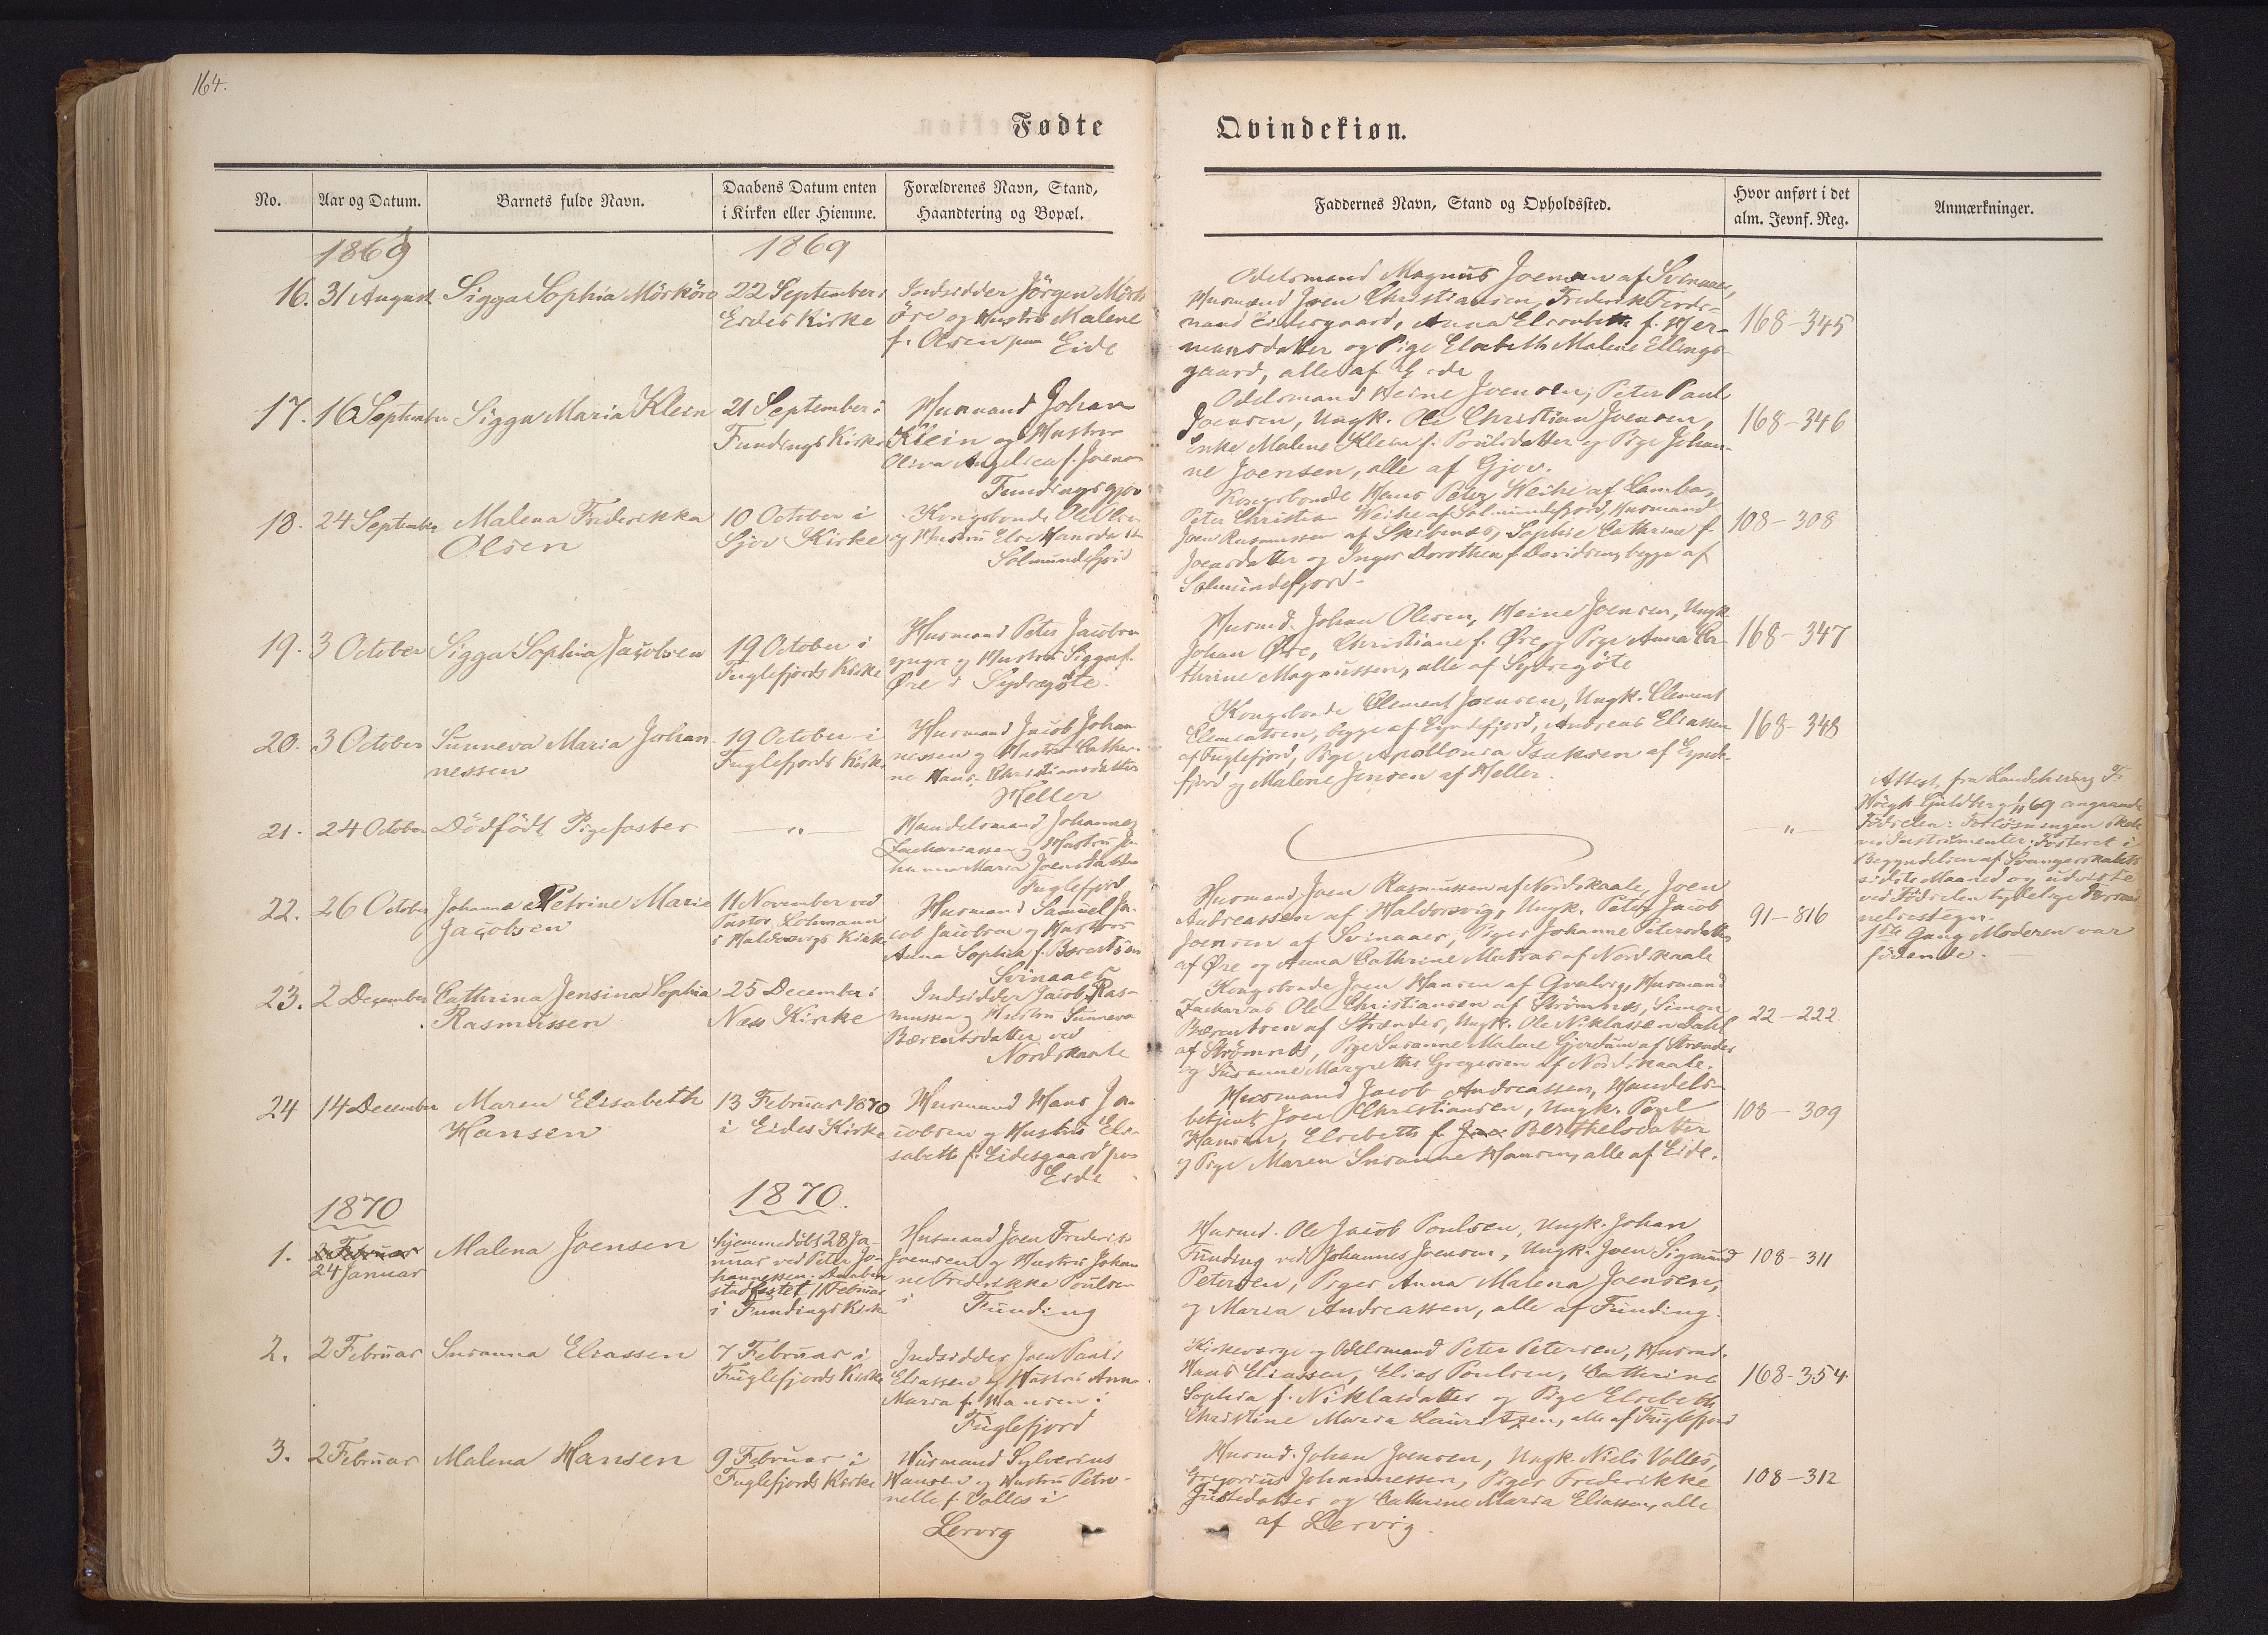 164.
Fødte
Qvindekiøn.
No.
Aar og Datum.
Barnets fulde Navn.
Daabens Datum enten
i Kirken eller Hiemme.
Forældrenes Navn, Stand,
Haandtering og Bopæl.
Faddernes Navn, Stand og Opholdssted.
Hvor anført i det
alm. Jevnf. Reg.
Anmærkninger.
1869
1869
16.
31 August
Sigga Sophia Mörköre
22 September i
Eides Kirke
Indsidder Jörgen Mörk
öre og Hustru Malene
f. Olsen paa Eide
Odelsmand Magnus Joensen af Svinaaer,
Husmand Joen Christiansen, Frederik Ferdi-
nand Eidesgaard, Anna Elsebeth f. Her-
mansdatter og Pige Elsebeth Malene Ellings-
gaard, alle af Eide
168-345
17.
16 September
Sigga Maria Klein
21 September i
Fundings Kirke
Husmand Johan
Klein og Hustru
Oliva Angelica f. Joens
Fundingsgjov
Odelsmand Heine Joensen, Peter Paul
Joensen, Ungk. Ole Christian Joensen,
Enke Malene Klein f. Poulsdatter og Pige Johan-
ne Joensen, alle af Gjov.
168-346
18.
24 September
Malena Frederikka
Olsen
10 October i
Gjov Kirke
Kongsbonde Ole Olsen
og Hustru Else Hansdatter
Solmundefjord
Kongsbonde Hans Peter Weihe af Lamba,
Peter Christian Weihe af Solmundefjord, Husmand
Joen Rasmussen af Skibenæs, Sophie Cathrine f.
Joensdatter og Inger Dorothea f. Davidsen, begge af
Solmundefjord.
108-308
19.
3 October
Sigga Sophia Jacobsen
19 October i
Fuglefjords Kirke
Husmand Peter Jacobsen
yngre og Hustru Sigga f.
Øre i Sydregöte.
Husmd. Johan Olesen, Heine Joensen, Ungk.
Johan Øre, Christiane f. Øre og Pige Anna Ca-
thrine Magnussen, alle af Sydregöte
168-347
20.
3 October
Sunneva Maria Johan-
nessen
19 October i
Fuglefjords Kirke
Husmand Jacob Johan
nessen og Hustru Cathri-
ne Hans. Christiansdatter
Heller
Kongsbonde Clement Joensen, Ungk. Clement
Clementsen, begge af Lyndefjord, Andreas Eliassen
af Fuglefjord, Pige Apollonia Isaksen af Lynde-
fjord og Malene Jensen af Heller.
168-348
21.
24 October
Dödfödt Pigefoster
"
Handelsmand Johannes
Zachariassen og Hustru Jo-
hanna Maria Joensdatter
Fuglefjord
"
Attest, fra Landchirurg
69 angaaende
Födselen: Forlösningen skete
ved Instrumenter; Fosteret i
Begyndelsen af Svangerskabets
sidste Maaned og udviste
ved Födselen tydelige Forraad
nelsestegn.
1ste Gang Moderen var
födende.
22.
26 October
Johanna Petrine Marie
Jacobsen
11 November ved
Pastor Lohmann
i Haldersvigs Kirke
Husmand Samuel Ja-
cob Jacobsen og Hustru
Anna Sophia f. Berentsen
Svinaaer
Husmand Joen Rasmussen af Nordskaale, Joen
Andreassen af Haldersvig, Ungk. Peter Jacob
Joensen af Svinaaer, Piger Johanne Petersdatter
af Øre og Anna Cathrine Matras af Nordskaale
91-816
23.
2 December
Cathrina Jensina Sophia
Rasmussen
25 December i
Næs Kirke
Indsidder Jacob Ras-
mussen og Hustru Sunneva
Berentsdatter ved
Nordskaale
Kongsbonde Joen Hansen af Qvalvig, Husmand
Zacharias Ole Christiansen af Strömnæs, Simon
Berentsen af Strænder, Ungk. Ole Niklassen Dahl
af Strömnæs, Pige Susanne Malene Gjerdum af Strænder
og Susanne Margrethe Gregersen af Nordskaale.
22-222
24
14 December
Maren Elisabeth
Hansen
13 Februar 1870
i Eides Kirke
Husmand Hans Ja-
cobsen og Hustru Els-
sabeth f. Eidesgaard paa
Eide
Husmand Jacob Andreassen, Handels-
betjent Joen Christiansen, Ungk. Poul
Hansen, Elsebeth f. Berthelsdatter
og Pige Maren Susanne Hansen, alle af Eide.
108-309
1870
1870.
1.
2 Februar
24 Januar
Malena Joensen
hjemmedöbt 28 Ja-
nuar ved Peter Jo-
hannessen. Daaben
stadfæstet 11 Februar
i Fundings Kirke
Husmand Joen Frederik
Joensen og Hustru Johan
ne Frederikke Poulsen
i Funding
Husmd. Ole Jacob Poulsen, Ungk. Johan
Funding ved Johannes Joensen, Ungk. Joen Sigmund
Petersen, Piger Anna Malena Joensen,
og Maria Andreassen, alle af Funding.
108-311
2.
2 Februar
Susanna Eliassen
7 Februar i
Fuglefjords Kirke
Indsidder Joen Paul
Eliassen og Hustru Anna
Maria f. Hansen i
Fuglefjord
Kirkeværge og Odelsmand Peter Petersen, Husmd.
Hans Eliassen, Elias Poulsen, Cathrine
Sophia f. Niklasdatter og Pige Elsebeth
Christine Maria Lauritzen, alle af Fuglefjord
168-354
3.
2 Februar
Malena Hansen
9 Februar i
Fuglefjords Kirke
Husmand Sylverius
Hansen og Hustru Petro-
nelle f. Volles i
Lervig
Husmd. Johan Joensen, Ungk. Niels Volles,
Gregorius Johannessen, Piger Frederikke
Justsdatter og Cathrine Maria Eliassen, alle
af Lervig.
108-312